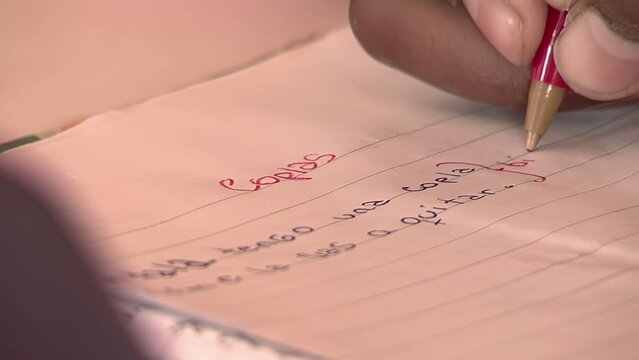 Coplas
tengo una copla
me la vas a quitar.